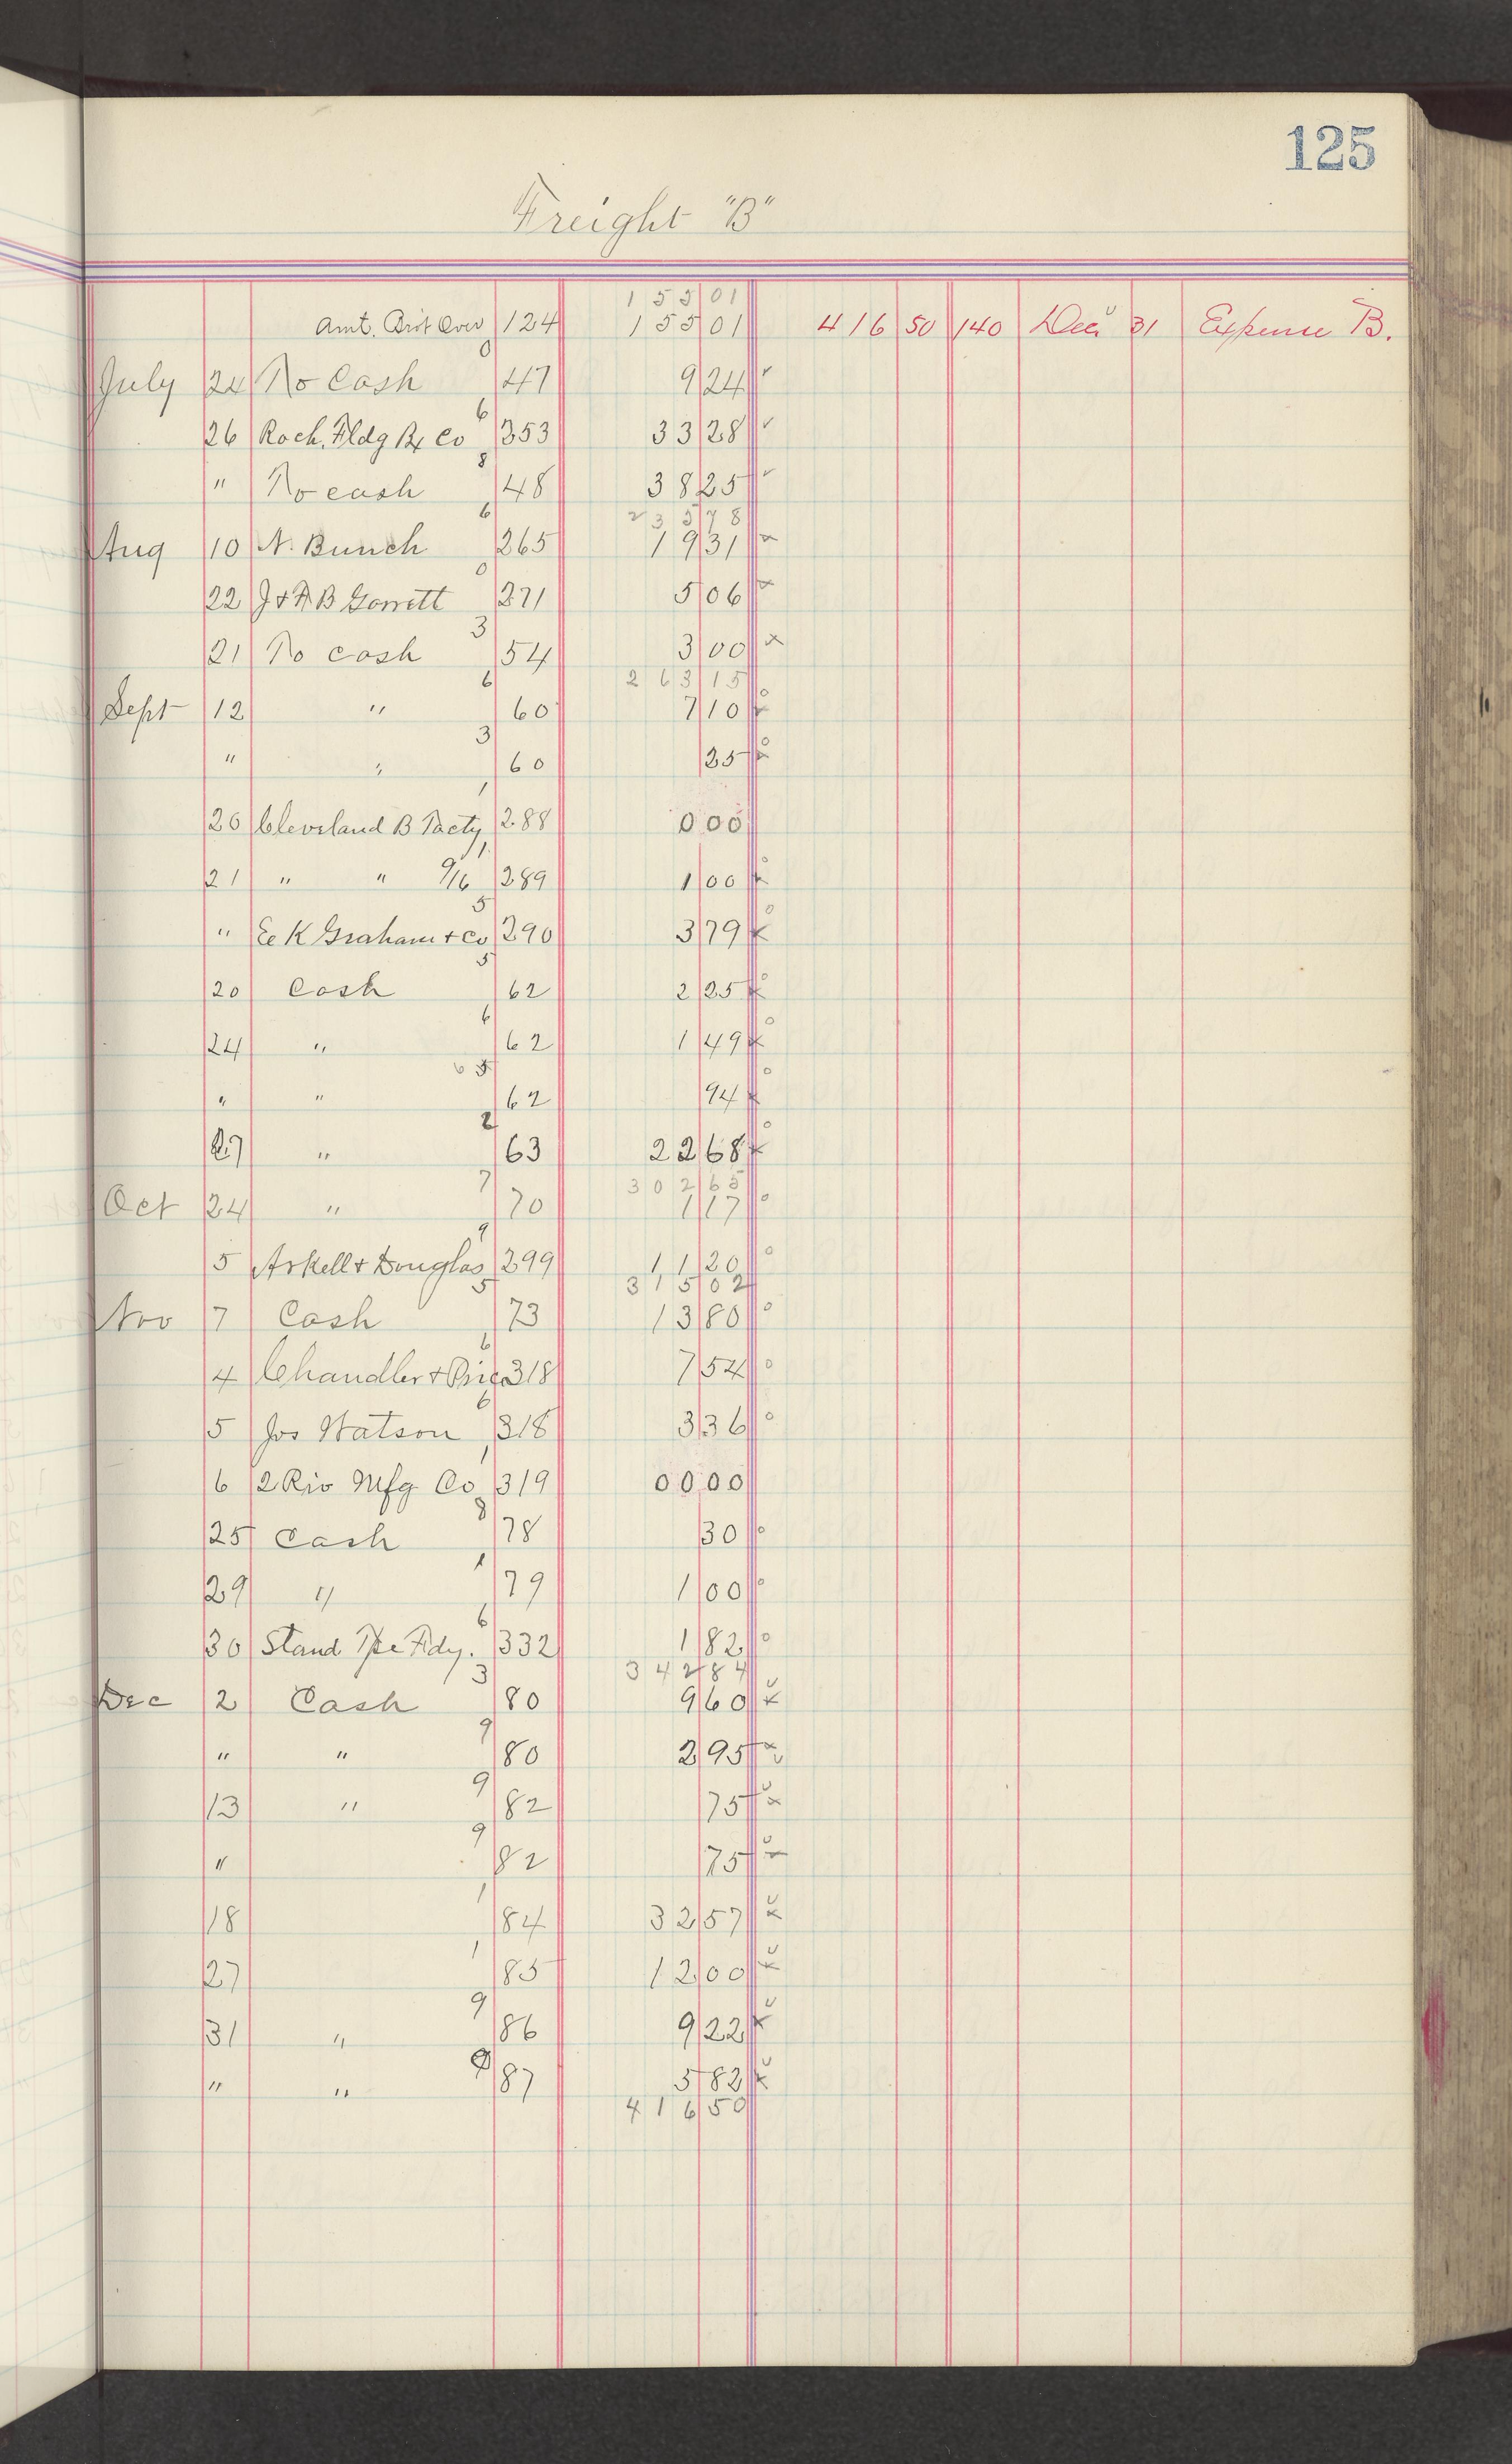 125
Freight "B"
155 01
Amt. Brot Over 124 155 01 416 50 140 Dec 31 Expense B.
0
July 24 To Cash 47 9 24
6
26 Roch. Fldg Bx Co 353 33 28
8
" To cash 48 38 25
6 235 78
Aug 10 N. Bunch 265 19 31
0
22 J & A B Garrett 271 5 06
3
21 To cash 54 3 00
6 263 15
Sept 12 " 60 7 10
3
" " 60 25
20 Cleveland B Facty 288 0 00
1
21 " " 9/16 289 1 00
5
" Ee K Graham & Co 290 3 79
5
20 Cash 62 2 25
6
24 " 62 1 49
6 5
" " 62 94
2
27 " 63 22 68
7 302 65
Oct 24 " 70 1 17
9
5 Arkell & Douglas 299 11 20
5 315 02
Nov 7 Cash 73 13 80
6
4 Chandler & Price 318 7 54
6
5 Jos Watson 318 3 36
6 2 Riv Mfg Co 319 00 00
8
25 Cash 78 30
1
29 " 79 1 00
6
30 Stand Tpe Fdy. 332 1 82
3 342 84
Dec 2 Cash 80 9 60
9
" " 80 2 95
9
13 " 82 75
9
" 82 75
1
18 84 32 57
1
27 85 12 00
9
31 " 86 9 22
9
" " 87 5 82
416 50